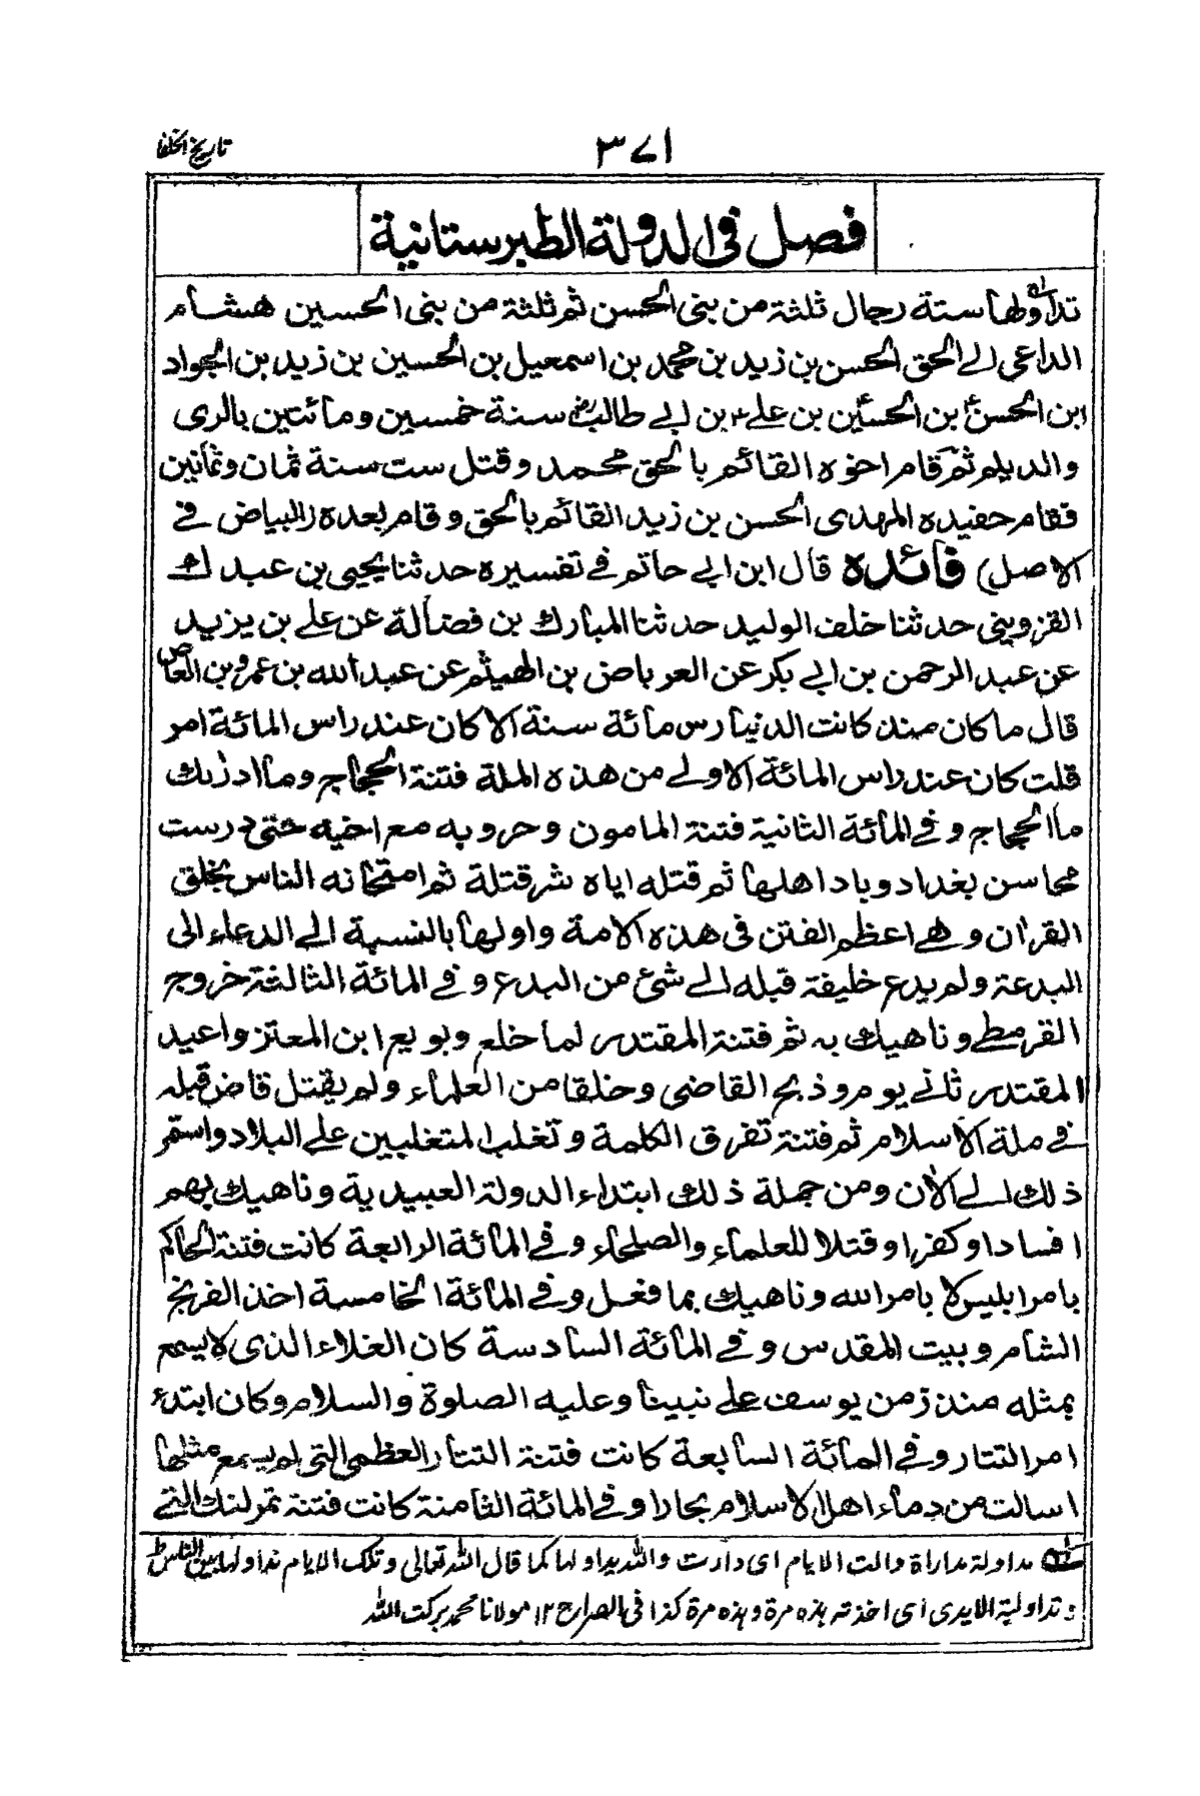 تاريخ الخلفا
٣٧١
فصل في الدولة الطبرستانية
تداولها ستة رجال ثلثة من بني الحسن ثم ثلثة من بني الحسين هشام
الداعي الي الحق الحسن بن زيد بن محمد بن اسمعيل بن الحسين بن زيد بن الجواد
ابن الحسن بن الحسين بن علي بن ابي طالب سنة خمسين ومائتين بالري
والديلم ثم قام اخوه القائم بالحق محمد وقتل ست سنة ثمان وثمانين
فقام حفيده المهدي الحسن بن زيد القائم بالحق وقام بعده (البياض في
الاصل) فائدة قال ابن ابي حاتم في تفسيره حدثنا يحيي بن عبدك
القزويني حدثنا خلف الوليد حدثنا المبارك بن فضالة عن علي بن يزيد
عن عبد الرحمن بن ابي بكر عن العرباض بن الهيثم عن عبد الله بن عمرو بن العاص
قال ما كان منذ كانت الدنيا رس مائة سنة الا كان عند راس المائة امر
قلت كان عند راس المائة الاولي من هذه الملة فتنة الحجاج وما ادرٰىك
ما الحجاج وفي المائة الثانية فتنة المامون وحروبه مع اخيه حتى درست
محاسن بغداد وباد اهلها ثم قتله اياه شر قتلة ثم امتحانه الناس بخلق
القرآن وهي اعظم الفتن في هذه الامة واولها بالنسبة الي الدعاء الى
البدعة ولم يدع خليفة قبله الي شئ من البدع وفي المائة الثالثة خروج
القرمطي وناهيك به ثم فتنة المقتدر لما خلع وبويع ابن المعتز واعيد
المقتدر ثاني يوم وذبح القاضي وخلقا من العلماء ولم يقتل قاض قبله
في ملة الاسلام ثم فتنة تفرق الكلمة وتغلب المتغلبين علي البلاد واستمر
ذلك الي الاٰن ومن جملة ذلك ابتداء الدولة العبيدية وناهيك بهم
افسادا وكفرا وقتلا للعلماء والصلحاء وفي المائة الرابعة كانت فتنة الحاكم
بامر ابليس لا بامر الله وناهيك بما فعل وفي المائة الخامسة اخذ الفرنج
الشام وبيت المقدس وفي المائة السادسة كان الغلاء الذي لا يسمع
بمثله منذ زمن يوسف علي نبينا وعليه الصلوة والسلام وكان ابتدء
امر التتار وفي المائة السابعة كانت فتنة التتار العظمي التي لم يسمع مثلها
اسالت من دماء اهل الاسلام بحارا وفي المائة الثامنة كانت فتنة تمرلنك التي
مداولة مداراة والت الايام اى دارت والله يداولها كما قال الله تعالى وتلك الايام نداولها بين الناس
وتداولية الايدى اى اخذته هذه مرة وهذه مرة كذا فى الصراح ١٢ مولانا محمد بركت الله